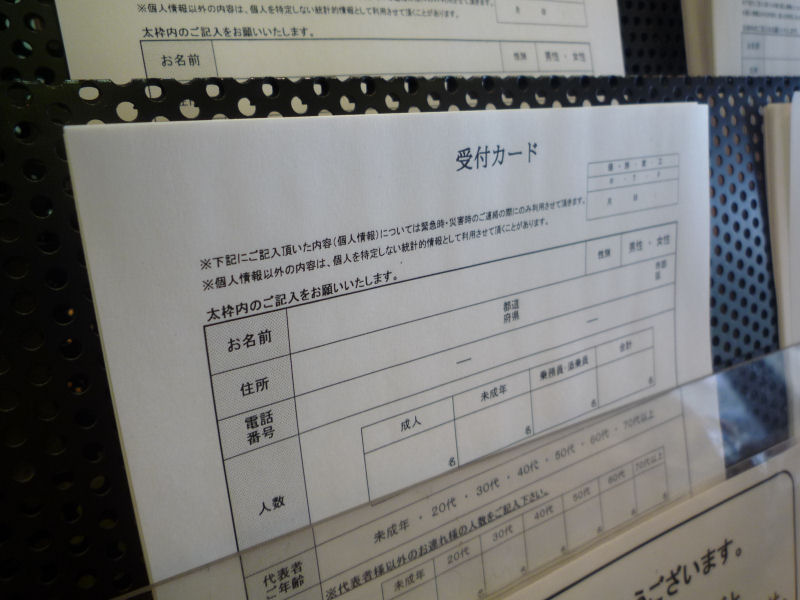 ※個人情報以外の内容は、個人を特定しない統計的情報として利用させて頂くことがあります。
月 日
太枠内のご記入をお願いいたします。
お名前 性別 男性・女性
受付カード
月 日
※下記にご記入頂いた内容(個人情報)については緊急時・災害時のご連絡の際にのみ利用させて頂きます。
※個人情報以外の内容は、個人を特定しない統計的情報として利用させて頂くことがあります。
太枠内のご記入をお願いいたします。
お名前 性別 男性・女性
住所 都道府県 市郡区
電話番号 ー ー
人数 成人 未成年 乗務員・添乗員 合計
名 名 名 名
代表者ご年齢 未成年・20代・30代・40代・50代・60代・70代以上
※代表者様以外のお連れ様の人数をご記入下さい。
未成年 20代 30代 40代 50代 60代 70代以上
名 名 名 名 名
うございます。